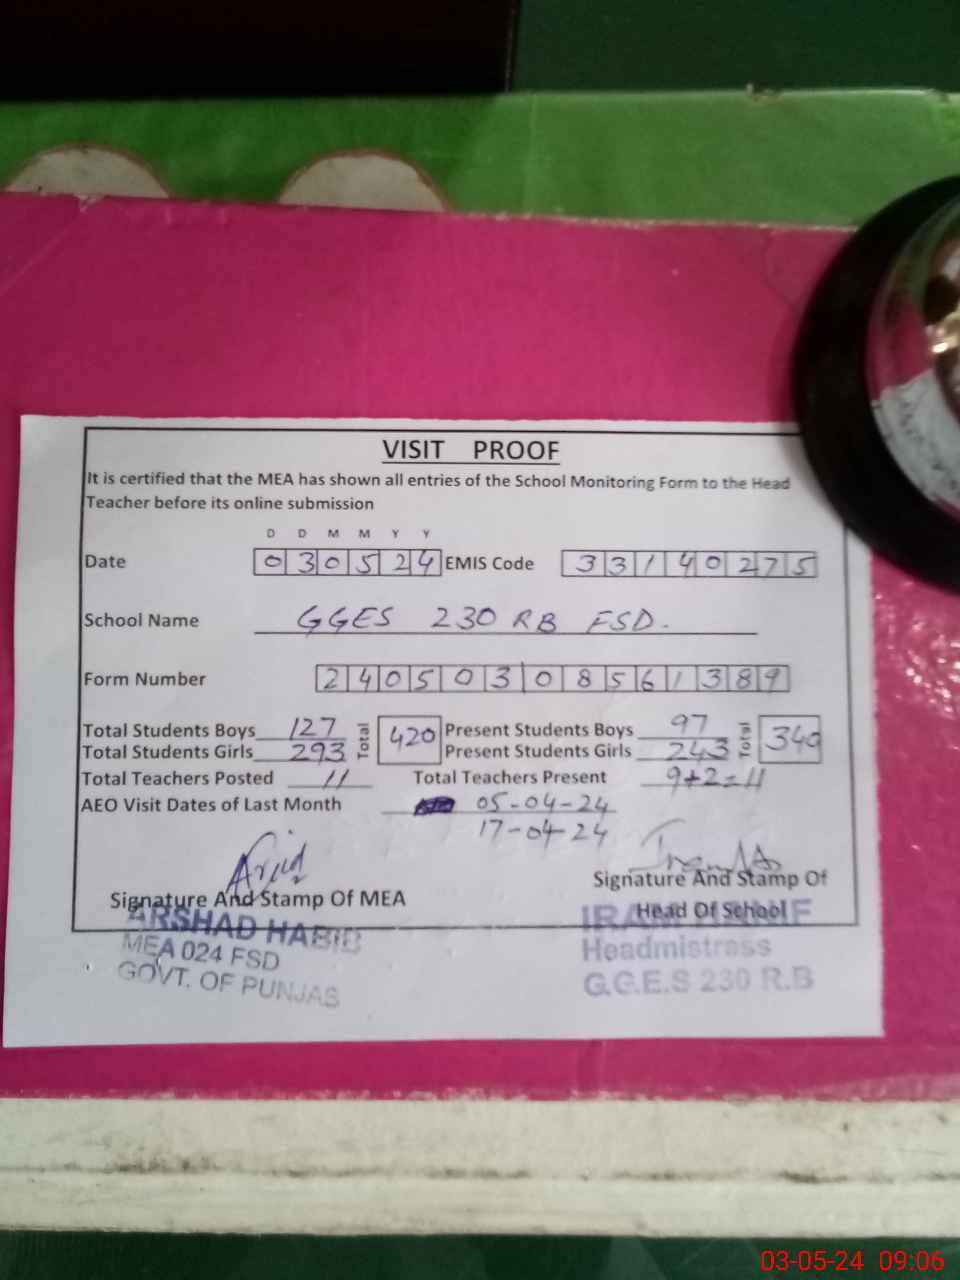 VISIT PROOF
It is certified that the MEA has shown all entries of the School Monitoring Form to the Head
Teacher before its online submission
D D M M Y Y
Date 030524 EMIS Code 33140275
School Name GGES 230 RB FSD.
Form Number 24050308561389
Total Students Boys 127 Total 420 Present Students Boys 97 Total 340
Total Students Girls 293 Present Students Girls 243
Total Teachers Posted 11 Total Teachers Present 9+2=11
AEO Visit Dates of Last Month 05-04-24
17-04-24
Signature And Stamp Of MEA Signature And Stamp Of
Head Of School
ARSHAD HABIB
MEA 024 FSD
GOVT. OF PUNJAB
IRAM
Headmistrass
G.G.E.S 230 R.B
03-05-24 09:06